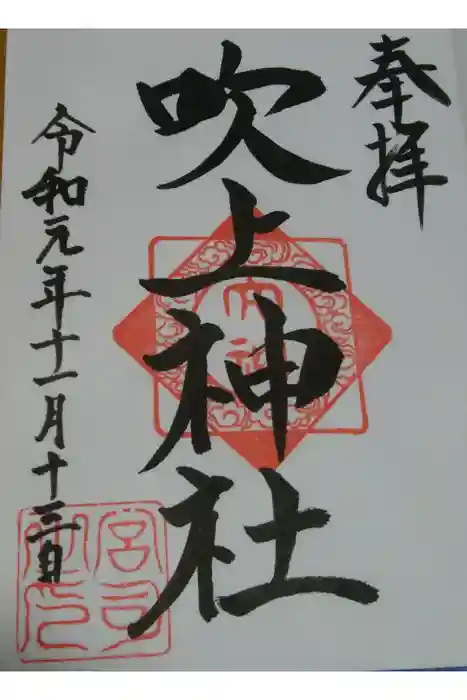 奉拝
吹上神社
令和元年十一月十三日
宮司
之印